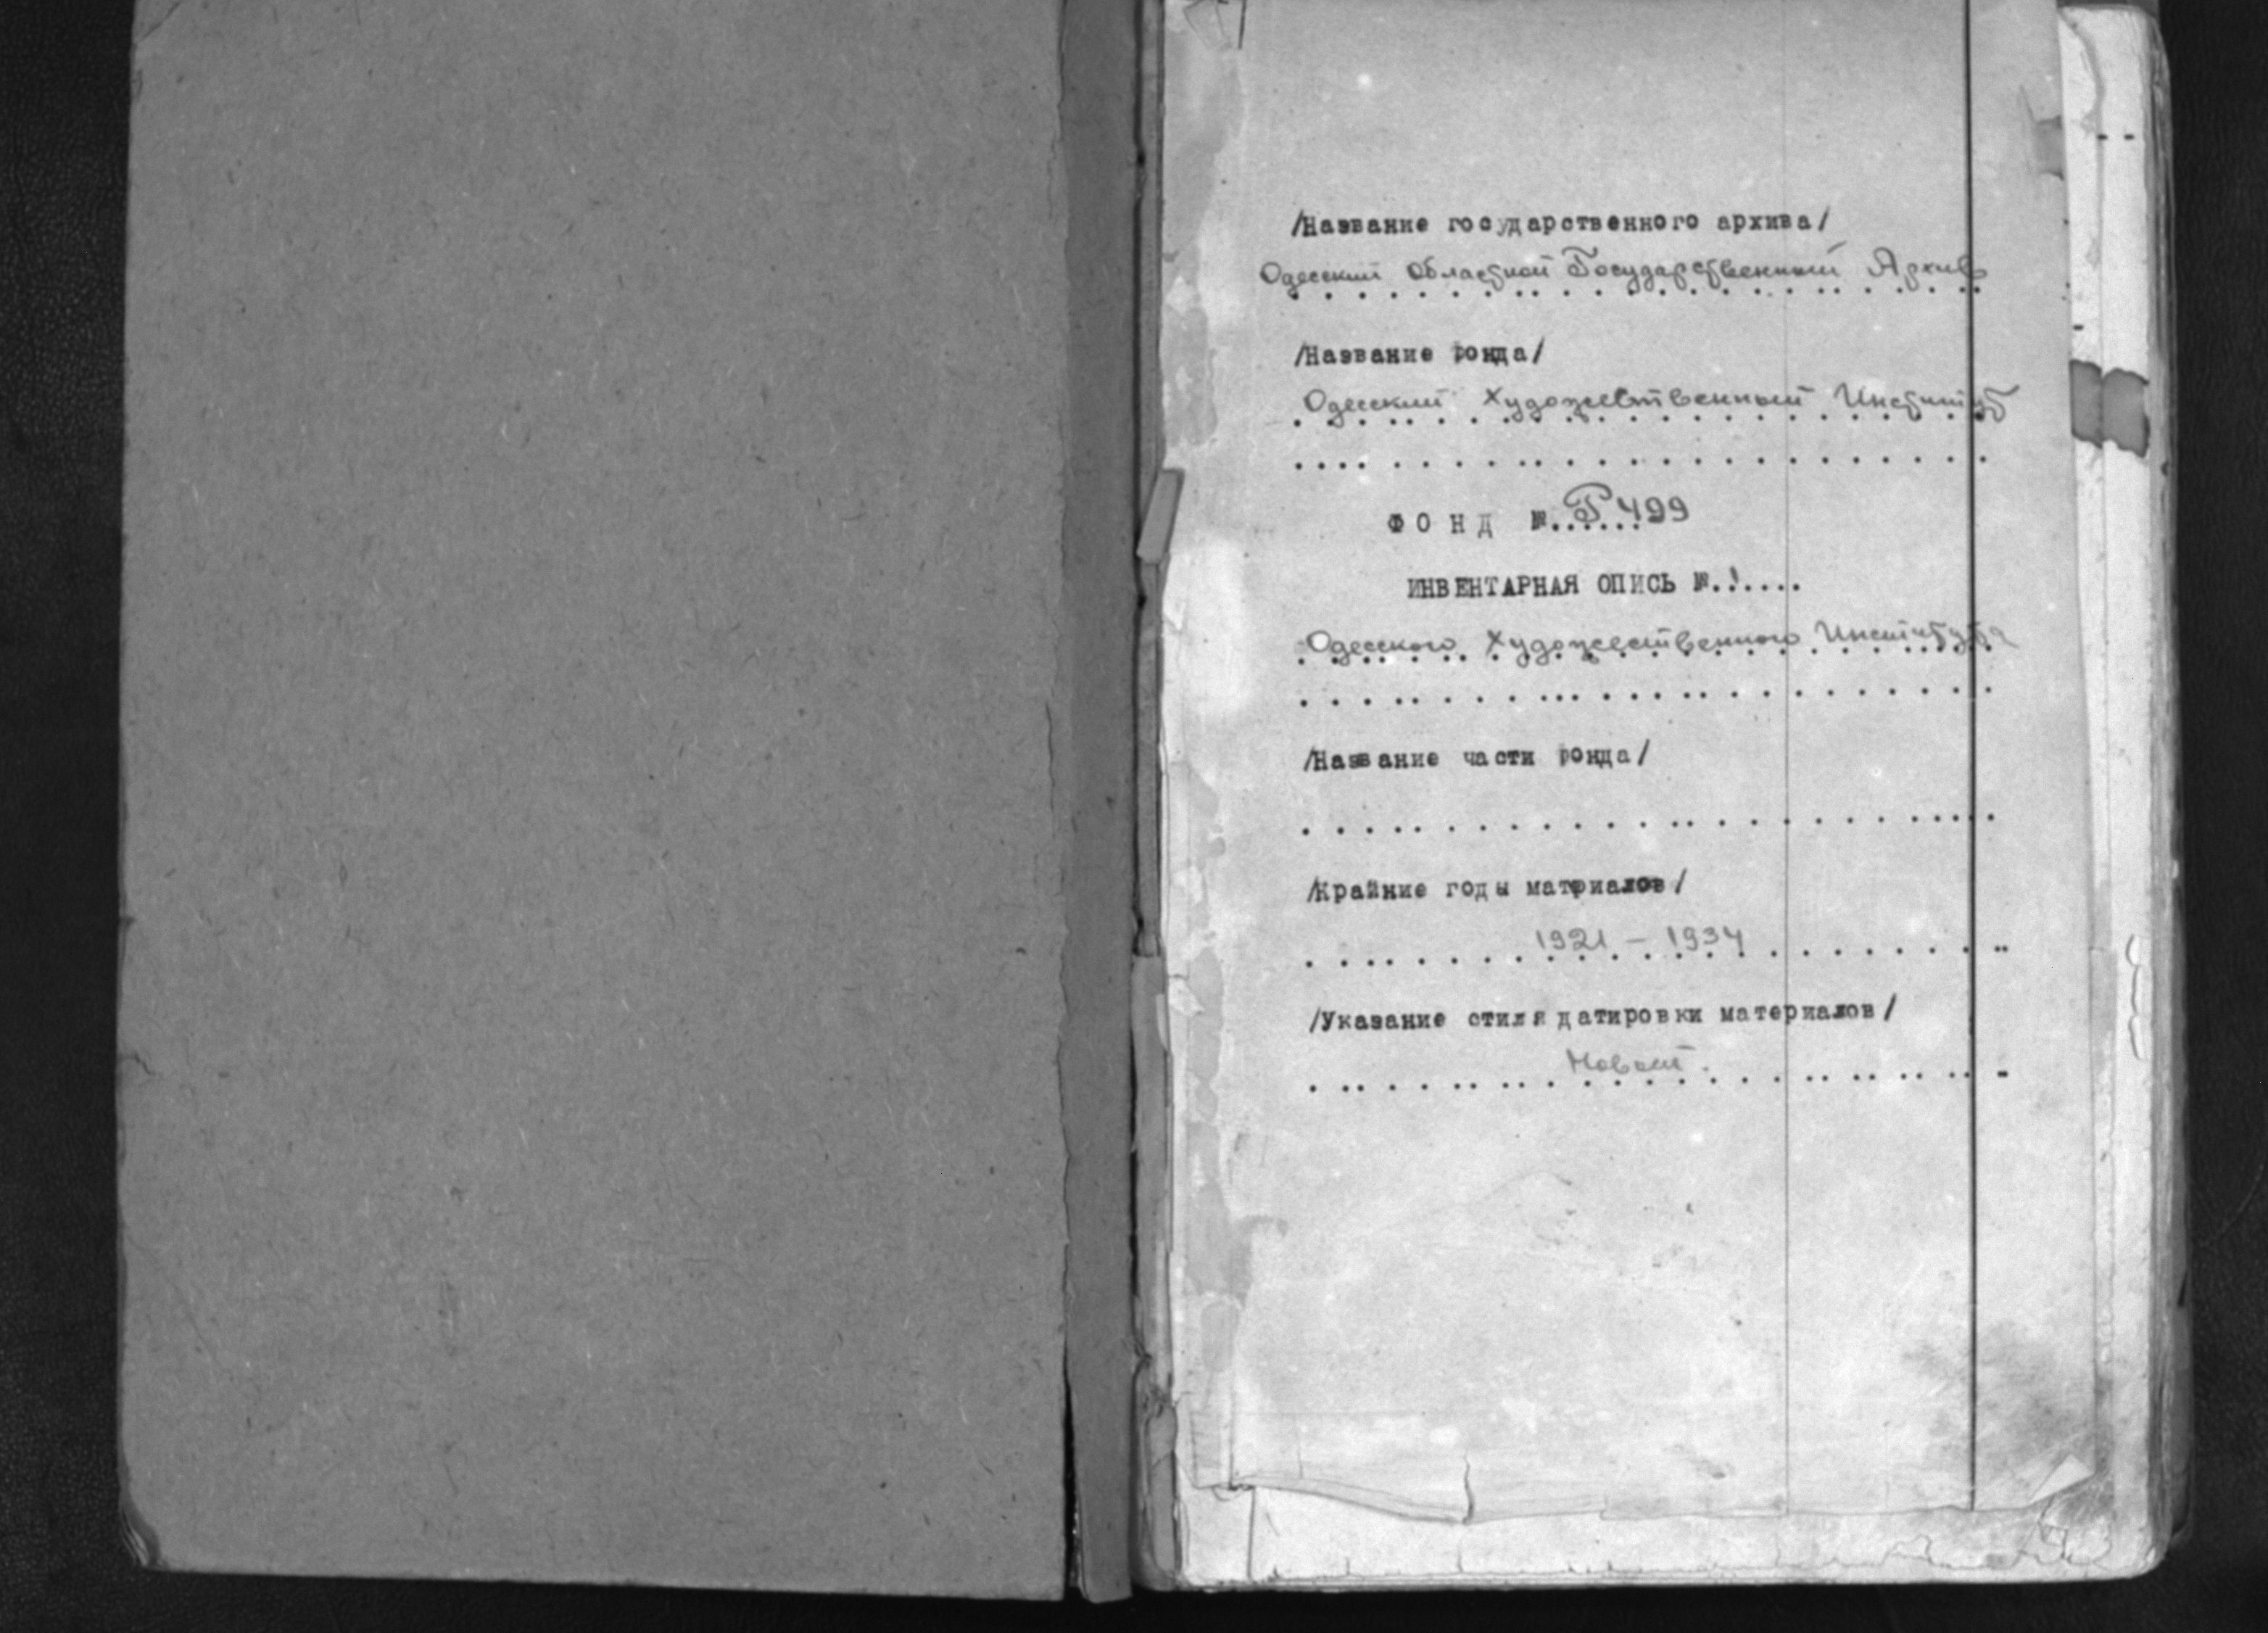 /Название государственного архива/
Одесский Областной Государственный Архив
/Название фонда/
Одесский Художественный Институт
ФОНД №. Р 499
ИНВЕНТАРНАЯ ОПИСЬ №.1....
Одесского Художественного Института
/Название части фонда/
/Крайние годы матриалов/
1921 – 1934
/Указание стиля датировки материалов/
Новый.